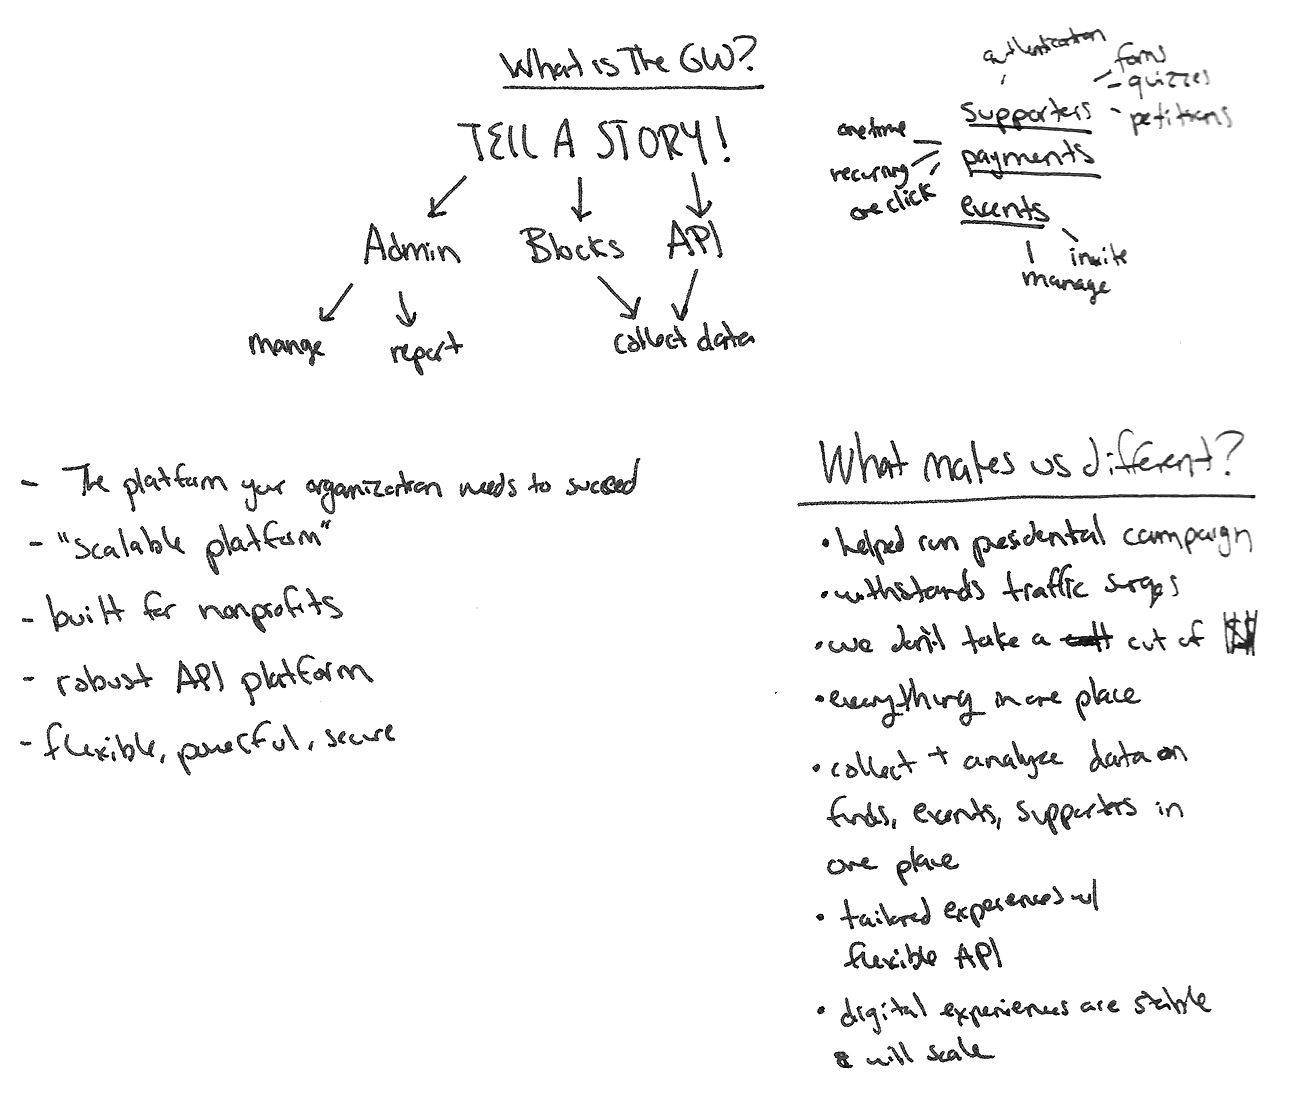 What is The GW?
TELL A STORY!
Admin Blocks API
mange report collect data
authentication
forms
quizzes
petitions
supporters
onetime
recurring
one click
payments
events
invite
manage
- The platform your organization needs to succeed
- "scalable platform"
- built for nonprofits
- robust API platform
- flexible, powerful, secure
What makes us different?
• helped run presidental campaign
• withstands traffic surges
• we don't take a cut of $$
• everything in one place
• collect + analyze data on
funds, events, supporters in
one place
• tailored experiences w/
flexible API
• digital experiences are stable
& will scale